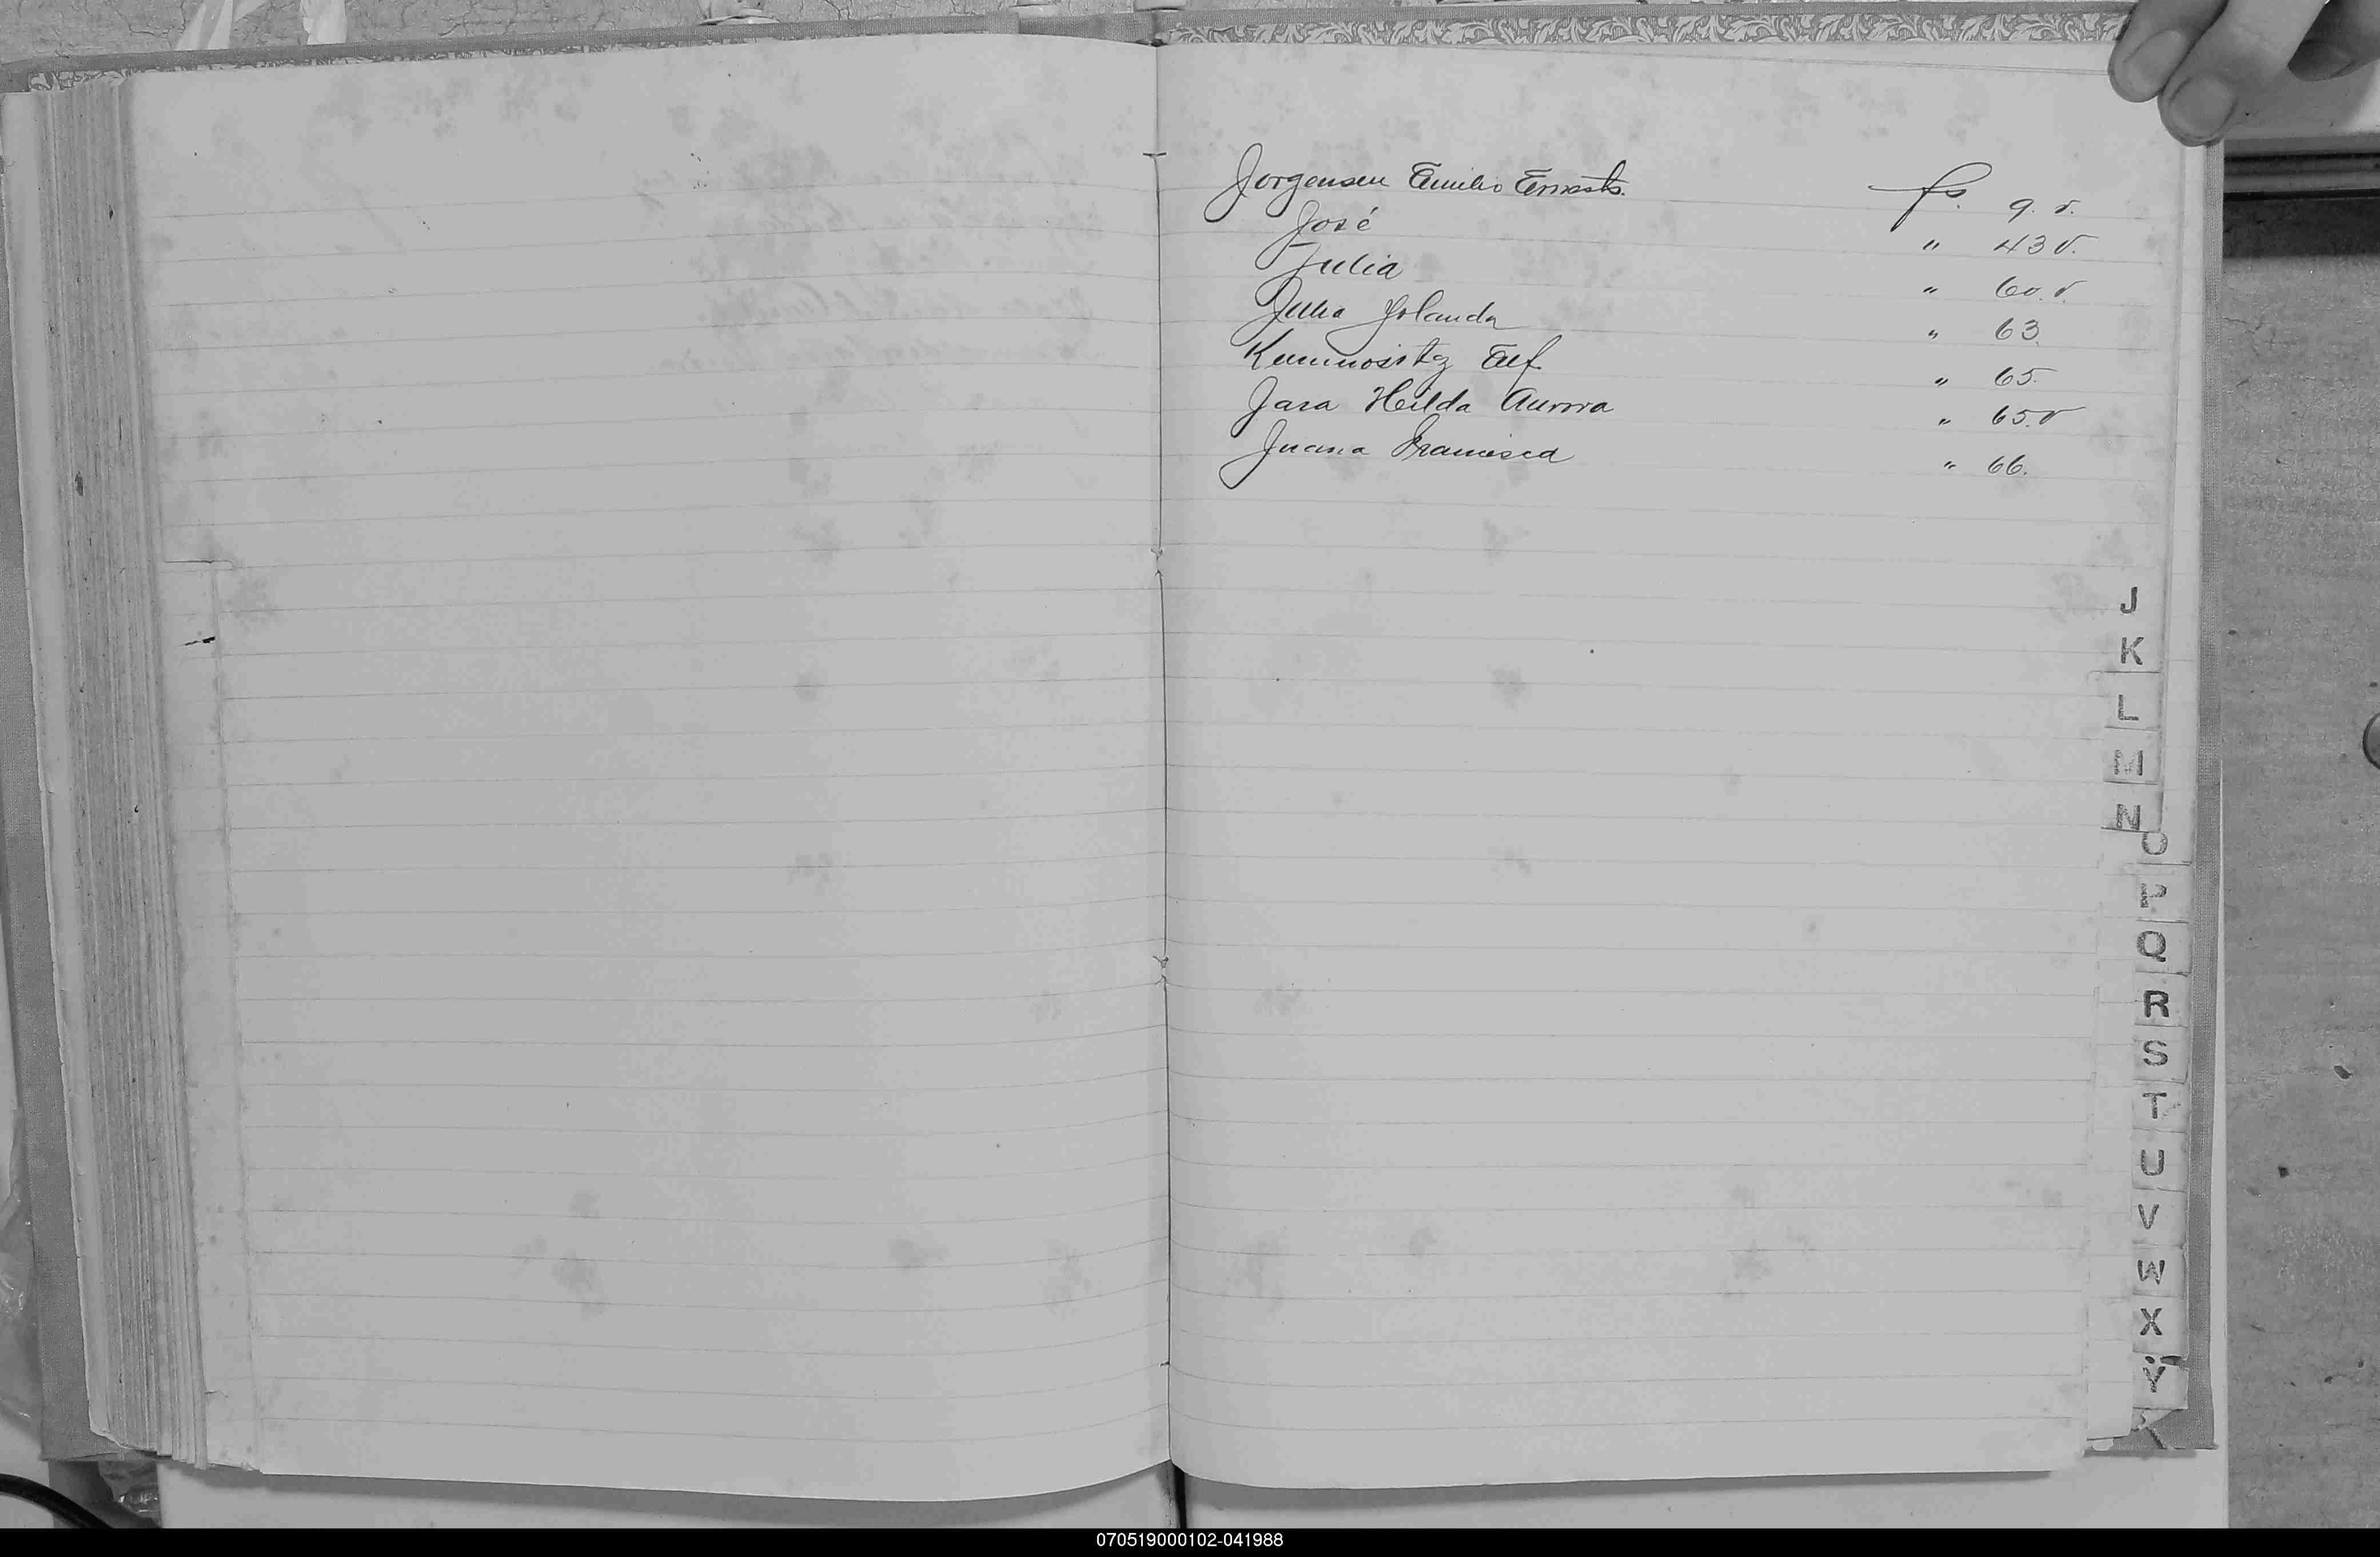 Jorgensen Emilio Ernesto. fs. 9. v.
José " 43 v.
Julia " 60. v.
Julia Yolanda " 63.
Alf. " 65.
Jara Hilda Aurora " 65. v
Juana Francisca " 66.
J
K
L
M
N
O
P
Q
R
S
T
U
V
W
X
Y
070519000102-041988